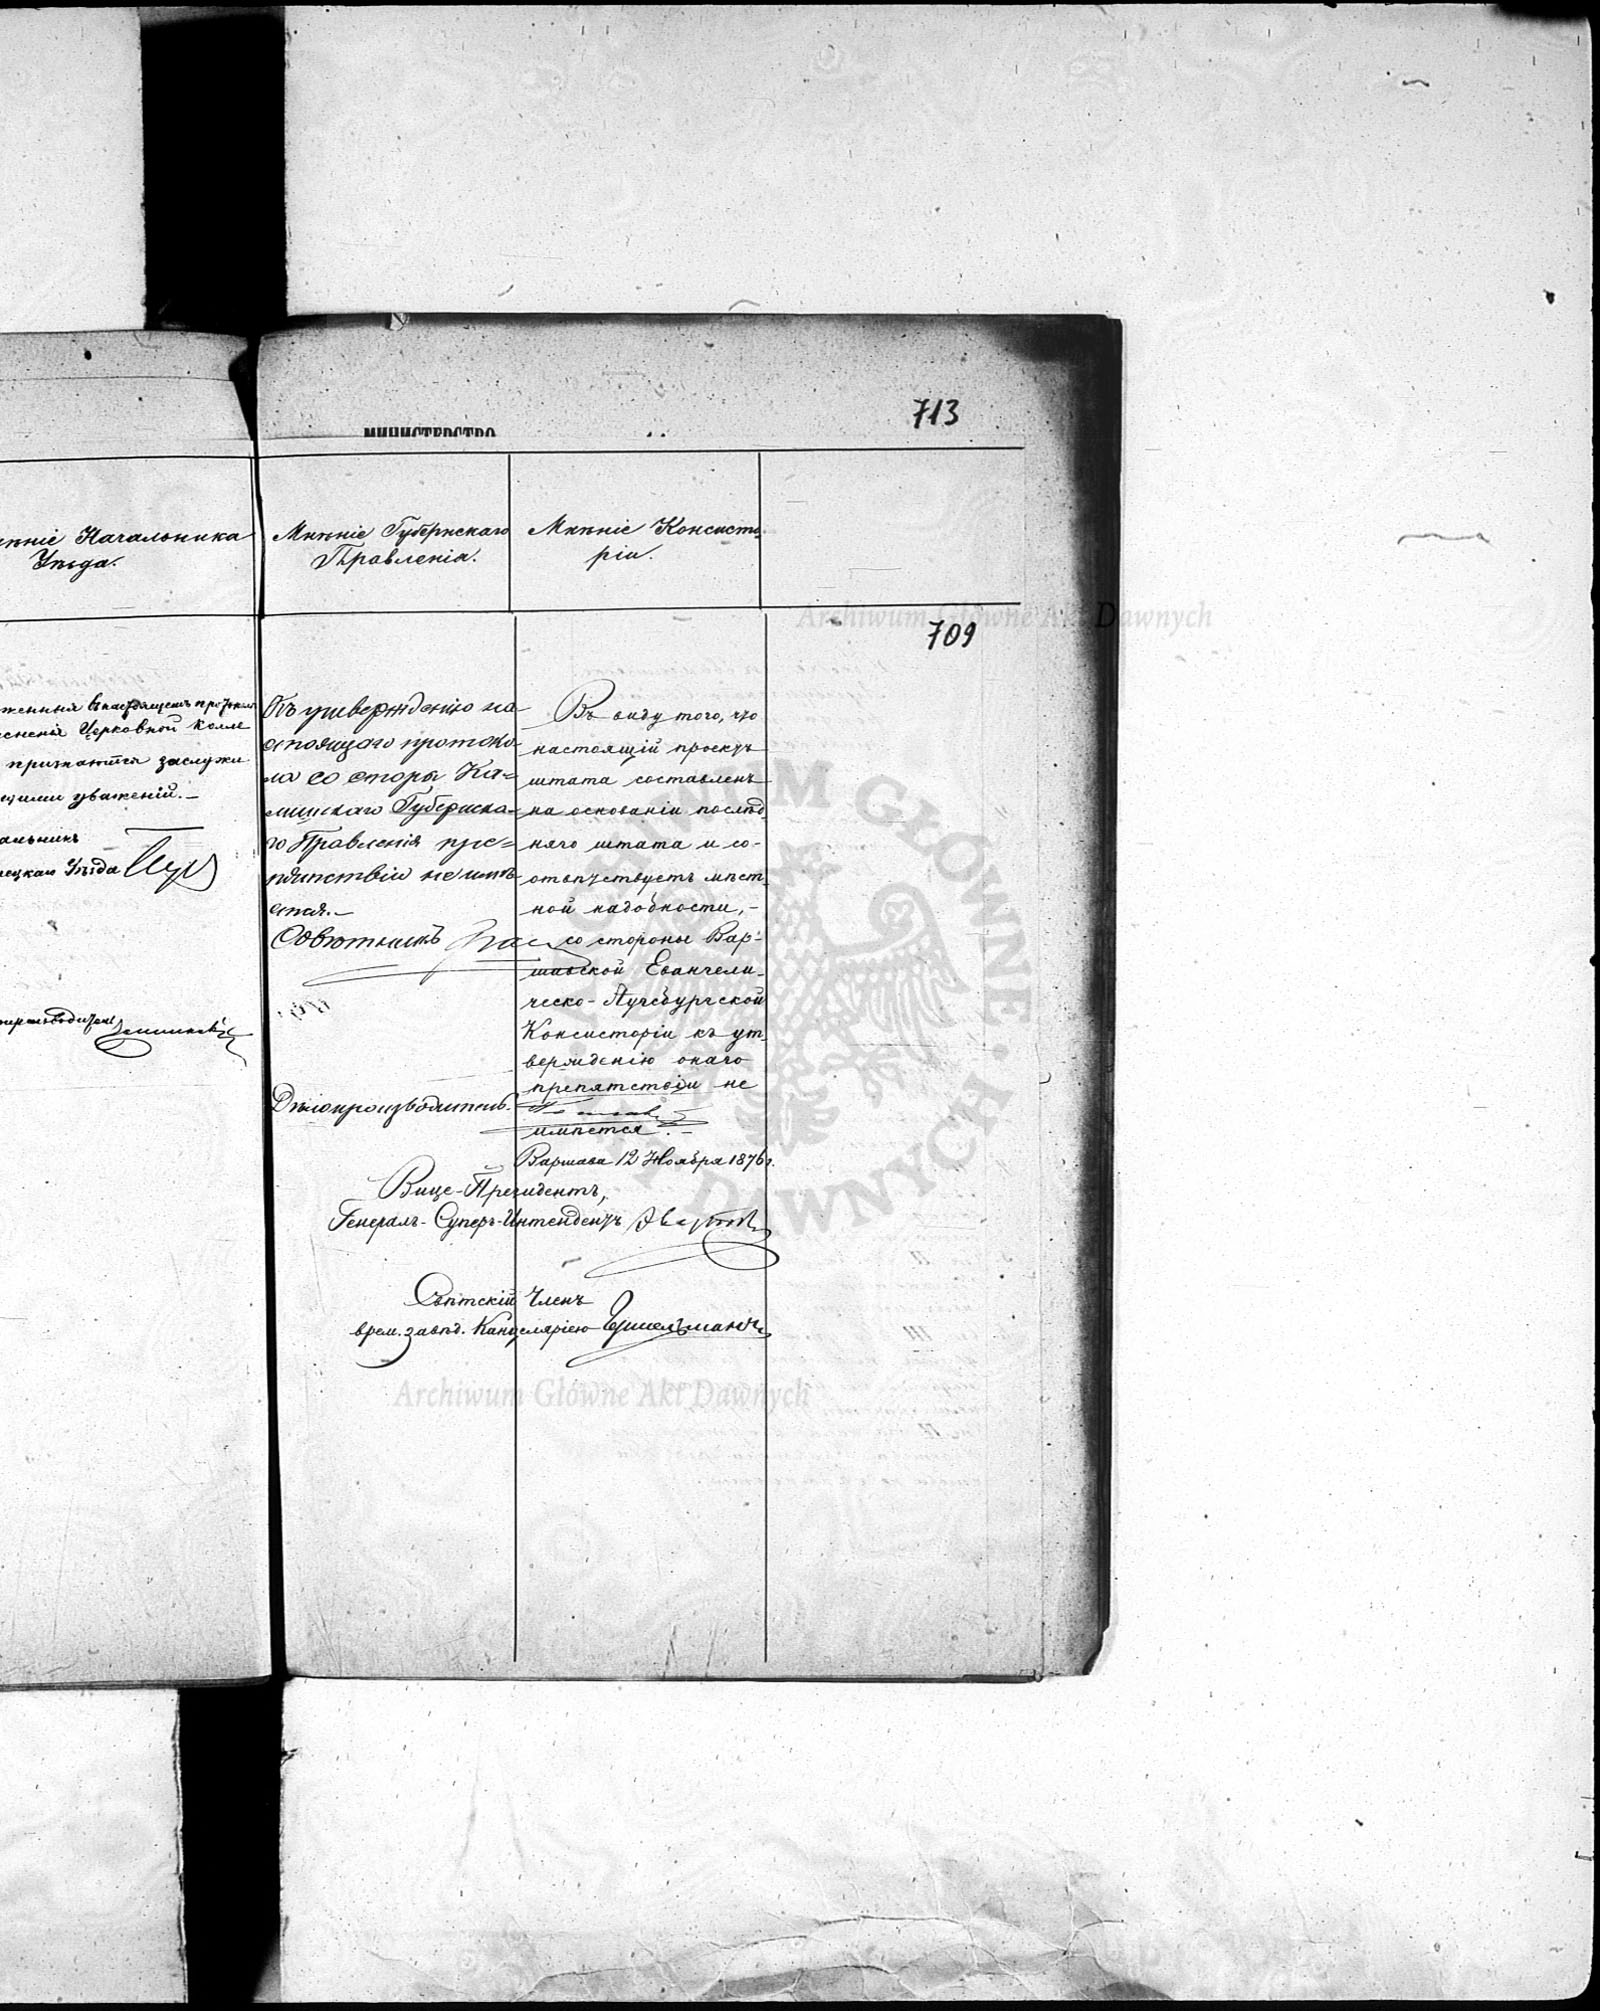 713
МИНИСТЕРСТВО
Начальника
Уѣзда.
Мнѣніе Губернскаго
Правленія.
Мнѣніе Консисто
ріи.
709
Archiwum Główne Akt Dawnych
женныя въ настоящемъ протокол
Церковной Колле
признаются заслужи
щими уваженій.—
альникъ
Уѣзда
Къ утвержденію на-
стоящаго протоко-
ла со стороны Ка-
лишскаго Губернска-
го Правленія пре-
пятствій не имѣ-
ется.—
Совѣтникъ
Дѣлопроизводитель
Въ виду того, что
настоящій проектъ
штата составленъ
на основаніи послѣд
няго штата и со-
отвѣтствуетъ мѣст
ной надобности,—
со стороны Вар-
шавской Евангели-
ческо-Аугсбургской
Консисторіи къ ут
вержденію онаго
препятствій не
имѣется.—
Варшава 12 Ноября 1876 г.
Вице-Президентъ,
Генералъ-Суперъ-Интендентъ
Свѣтскій Членъ
врем. завѣд. Канцеляріею
Archiwum Główne Akt Dawnych
ARCHIWUM GŁÓWNE AKT DAWNYCH